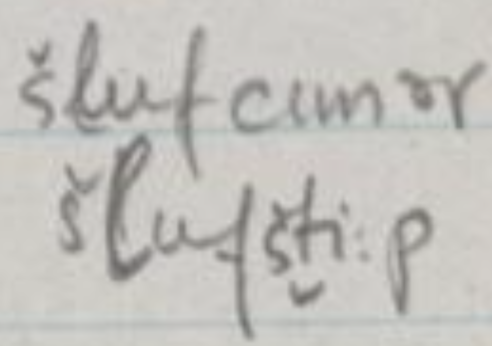 šlufcimər
šlufšti:p